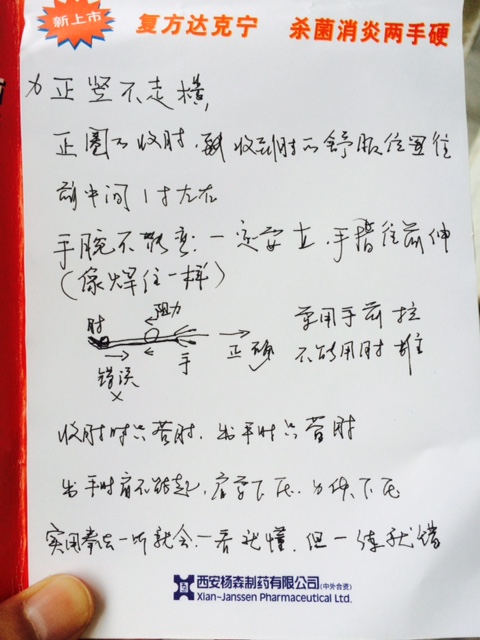 新上市
复方达克宁 杀菌消炎两手硬
为正竖不走横,
正圈不收肘,最收到肘不舒服位置往
前中间1寸左右
手腕不能变:一定要立,手指往前伸
(像焊住一样)
阻力
肘
手
错误
×
正确
要用手前拉
不能用肘推
收肘时只管肘,出手时只管
出手时肩不能起,肩要下
实用拳法一听就会,一看就懂,但一练就错
西安杨森制药有限公司(中外合资)
Xian-Janssen Pharmaceutical Ltd.